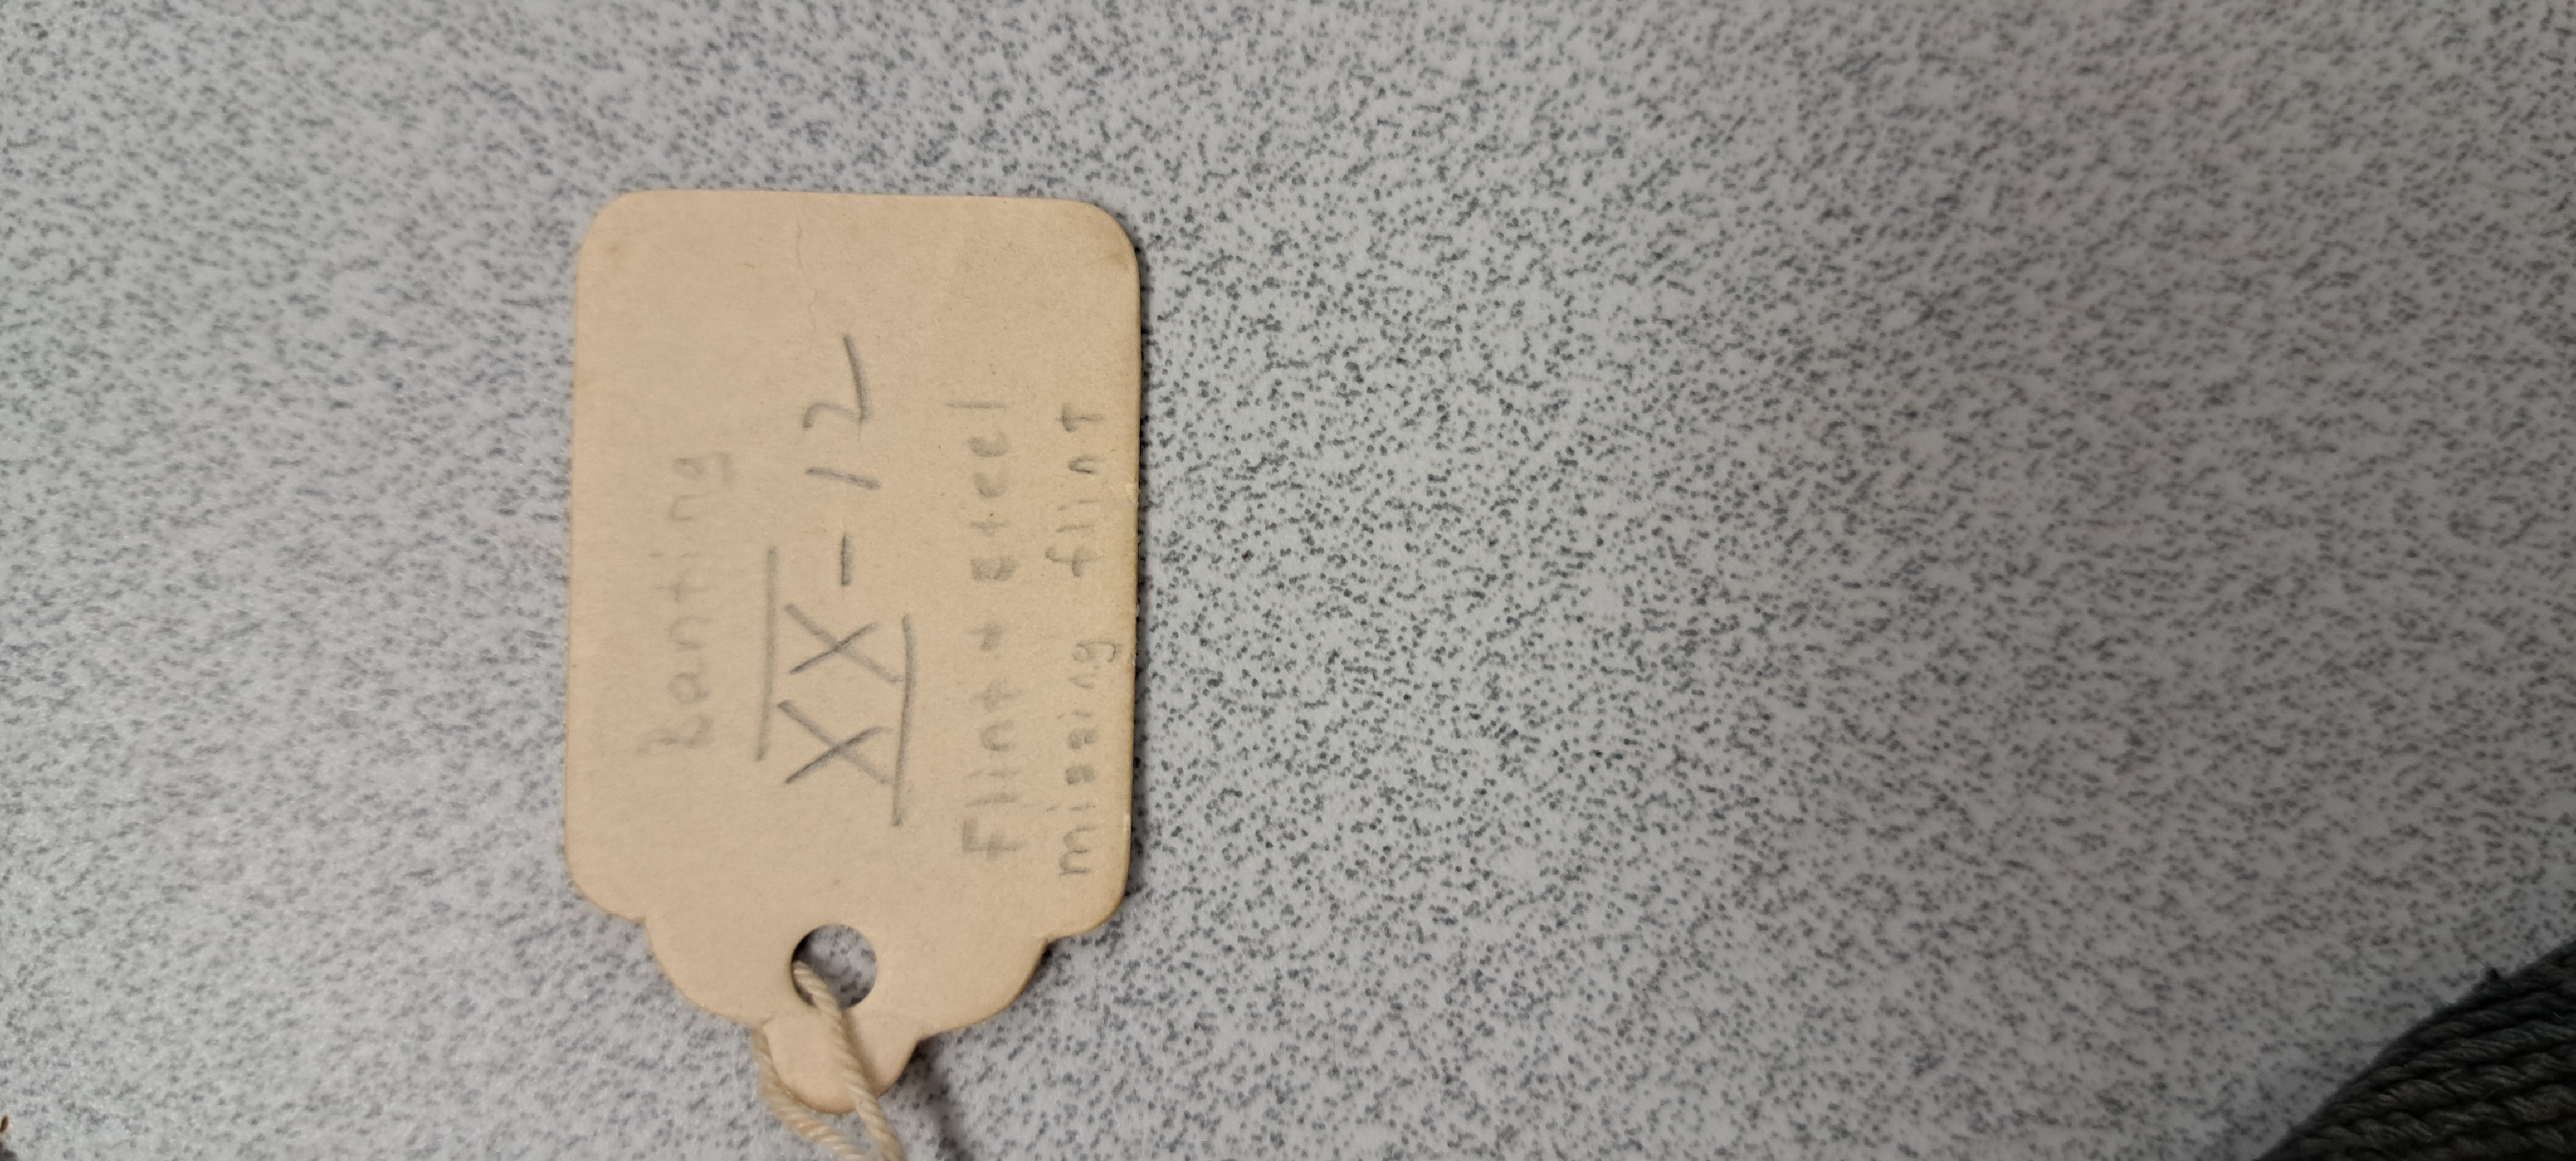 Banting
XX-12
Flint + steel
missing flint